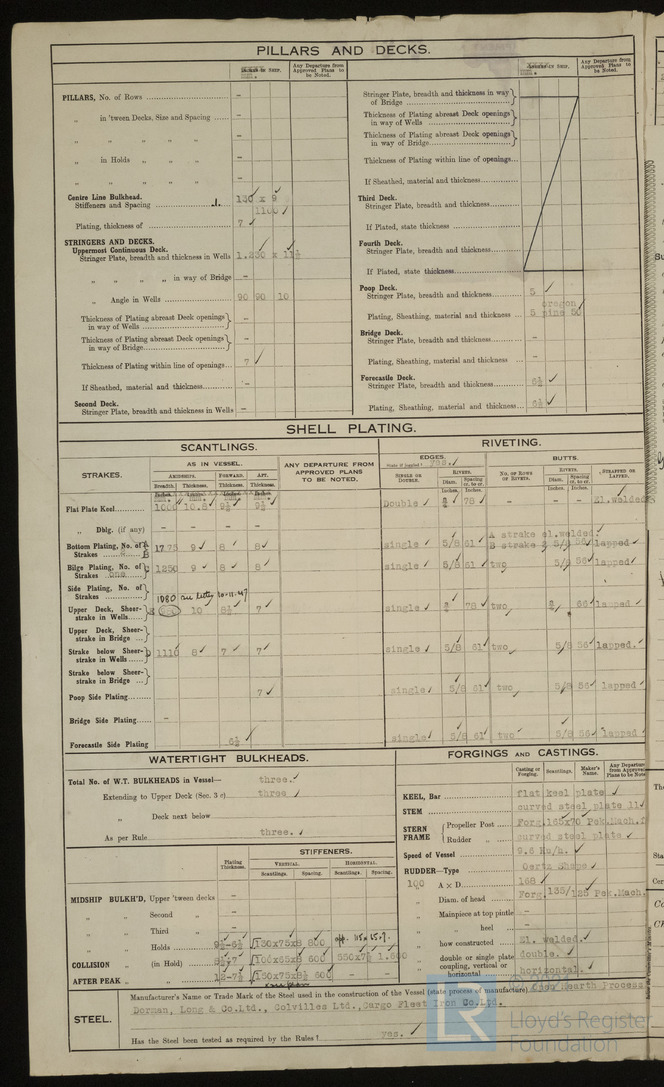 PILLARS AND DECKS.
Any Departure from Approved Plans to be Noted.
Any Departure from Approved Plans to be Noted.
PILLARS, No. of Rows –
„ in 'tween Decks, Size and Spacing –
„ „ „ „ „ –
„ in Holds „ „ –
„ „ „ „ –
Centre Line Bulkhead.
Stiffeners and Spacing 130 x 9
1100
Plating, thickness of 7
STRINGERS AND DECKS.
Uppermost Continuous Deck.
Stringer Plate, breadth and thickness in Wells
„ „ „ „ in way of Bridge –
„ Angle in Wells 90 90 10
Thickness of Plating abreast Deck openings in way of Wells –
Thickness of Plating abreast Deck openings in way of Bridge –
Thickness of Plating within line of openings 7
If Sheathed, material and thickness –
Second Deck.
Stringer Plate, breadth and thickness in Wells –
Stringer Plate, breadth and thickness in way of Bridge
Thickness of Plating abreast Deck openings in way of Wells
Thickness of Plating abreast Deck openings in way of Bridge
Thickness of Plating within line of openings
If Sheathed, material and thickness
Third Deck.
Stringer Plate, breadth and thickness
If Plated, state thickness
Fourth Deck.
Stringer Plate, breadth and thickness
If Plated, state thickness
Poop Deck.
Stringer Plate, breadth and thickness 5
Plating, Sheathing, material and thickness 5 oregon pine 50
Bridge Deck.
Stringer Plate, breadth and thickness –
Plating, Sheathing, material and thickness –
Forecastle Deck.
Stringer Plate, breadth and thickness 6½
Plating, Sheathing, material and thickness 6½
SHELL PLATING.
SCANTLINGS. RIVETING.
STRAKES. AS IN VESSEL. ANY DEPARTURE FROM APPROVED PLANS TO BE NOTED. EDGES. yes. BUTTS.
AMIDSHIPS. FORWARD. AFT. SINGLE OR DOUBLE. RIVETS. NO. OF ROWS OF RIVETS. RIVETS. STRAPPED OR LAPPED.
Breadth. Thickness. Thickness. Thickness. Diam. Spacing cr. to cr. Diam. Spacing cr. to cr.
Inches. Inches. Inches. Inches.
Flat Plate Keel 1000 10.8 9½ 9½ Double ¾ 78 – – – El.welded
„ Dblg. (if any) – – – –
A strake el.welded.
Bottom Plating, No. of Strakes 1775 9 8 8 single 5/8 61 B strake 5/8 56 lapped
Bilge Plating, No. of Strakes one 1250 9 8 8 single 5/8 61 two 5/8 56 lapped
Side Plating, No. of Strakes
1080
Upper Deck, Sheer-strake in Wells 10 8½ 7 single ¾ 78 two ¾ 66 lapped
Upper Deck, Sheer-strake in Bridge
Strake below Sheer-strake in Wells 1110 8 7 7 single 5/8 61 two 5/8 56 lapped.
Strake below Sheer-strake in Bridge
Poop Side Plating 7 single 5/8 61 two 5/8 56 lapped
Bridge Side Plating –
Forecastle Side Plating 6½ single 5/8 61 two 5/8 56 lapped
WATERTIGHT BULKHEADS.
Total No. of W.T. BULKHEADS in Vessel— three.
Extending to Upper Deck (Sec. 3 c) three
„ Deck next below
As per Rule three.
Plating Thickness. STIFFENERS.
VERTICAL. HORIZONTAL.
Scantlings. Spacing. Scantlings. Spacing.
MIDSHIP BULKH'D, Upper 'tween decks –
„ „ Second „ –
„ „ Third „ –
„ „ Holds 9½-6½ 130x75x8 800
COLLISION „ (in Hold) 100x65x8 600
AFTER PEAK „ „ 150x75x8½ 600 – –
FORGINGS AND CASTINGS.
Casting or Forging. Scantlings. Maker's Name. Any Departure from Approved Plans to be Noted
KEEL, Bar flat keel plate
STEM curved steel plate 11
STERN FRAME { Propeller Post Forg. 165x70 Pok.Mach.
Rudder „ curved steel plate
Speed of Vessel 9.6 Kn/h.
RUDDER—Type Oertz Shape
100 A x D 168
„ Diam. of head Forg. 135/125 Pok.Mach.
„ Mainpiece at top pintle –
„ „ heel –
„ how constructed El. welded.
„ double or single plate double.
„ coupling, vertical or horizontal horizontal.
STEEL. Manufacturer's Name or Trade Mark of the Steel used in the construction of the Vessel (state process of manufacture) Open Hearth Process
Dorman, Long & Co.Ltd., Colvilles Ltd., Cargo Fleet Iron Co.Ltd.
Has the Steel been tested as required by the Rules? yes.
LR Lloyd's Register Foundation